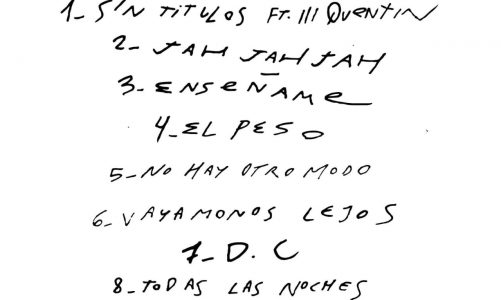 1- SIN TITULOS FT. III QUENTIN
2- JAH JAH JAH
3- ENSEÑAME
4- EL PESO
5- NO HAY OTRO MODO
6- VAYAMONOS LEJOS
7- D. C
8- TODAS LAS NOCHES